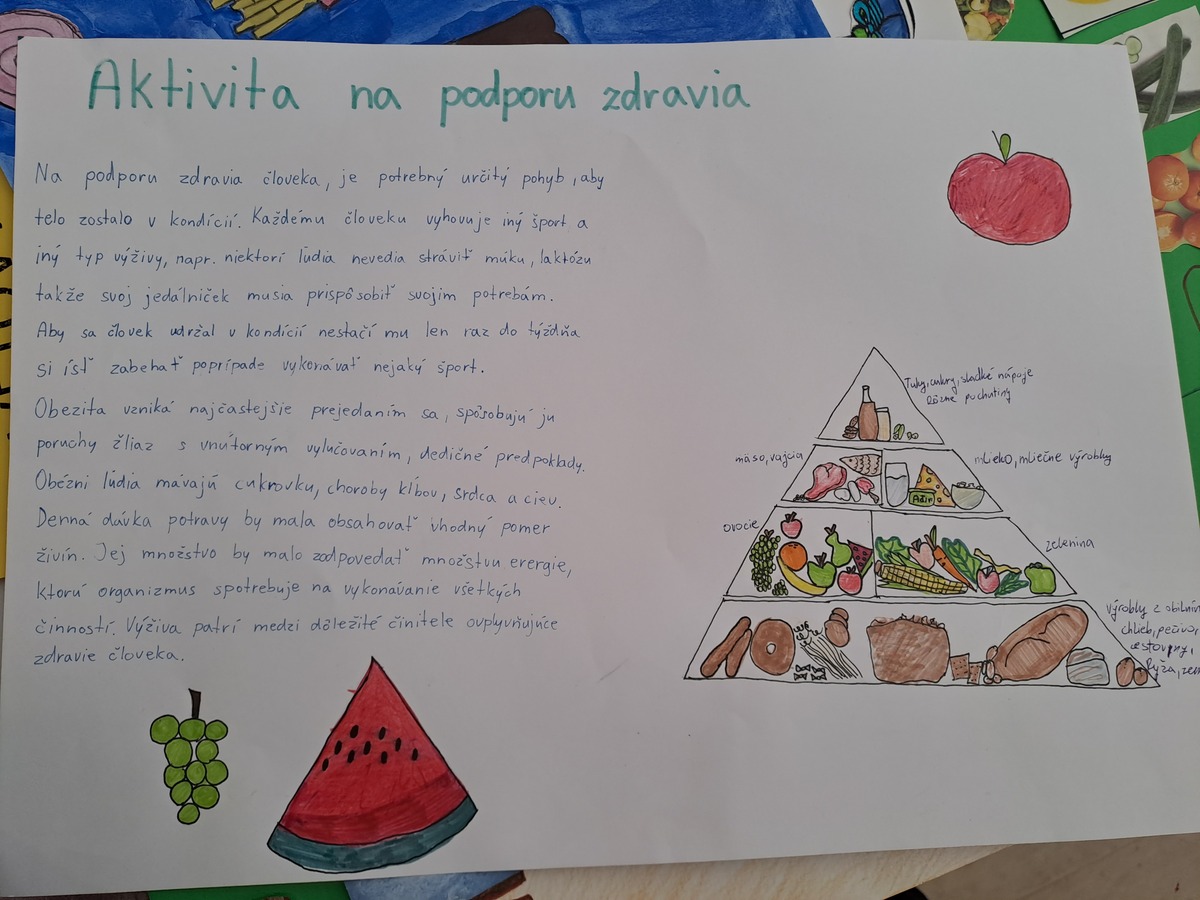 Aktivita na podporu zdravia
Na podporu zdravia človeka, je potrebný určitý pohyb, aby
telo zostalo v kondícií. Každému človeku vyhovuje iný šport a
iný typ výživy, napr. niektorí ľudia nevedia stráviť múku, laktózu
takže svoj jedálniček musia prispôsobiť svojim potrebám.
Aby sa človek udržal v kondícií nestačí mu len raz do týždňa
si ísť zabehať poprípade vykonávať nejaký šport.
Obezita vzniká najčastejšie prejedaním sa, spôsobujú ju
poruchy žliaz s vnútorným vylučovaním, dedičné predpoklady.
Obézni ľudia mávajú cukrovku, choroby kĺbov, srdca a ciev.
Denná dávka potravy by mala obsahovať vhodný pomer
živín. Jej množstvo by malo zodpovedať množstvu energie,
ktorú organizmus spotrebuje na vykonávanie všetkých
činností. Výživa patrí medzi dôležité činitele ovplyvňujúce
zdravie človeka.
Tuky, cukry, sladké nápoje
rôzne pochutiny
mäso, vajcia
mlieko, mliečne výrobky
ovocie
zelenina
výrobky z obilnín
chlieb, pečivo,
cestoviny,
Ryža, zem